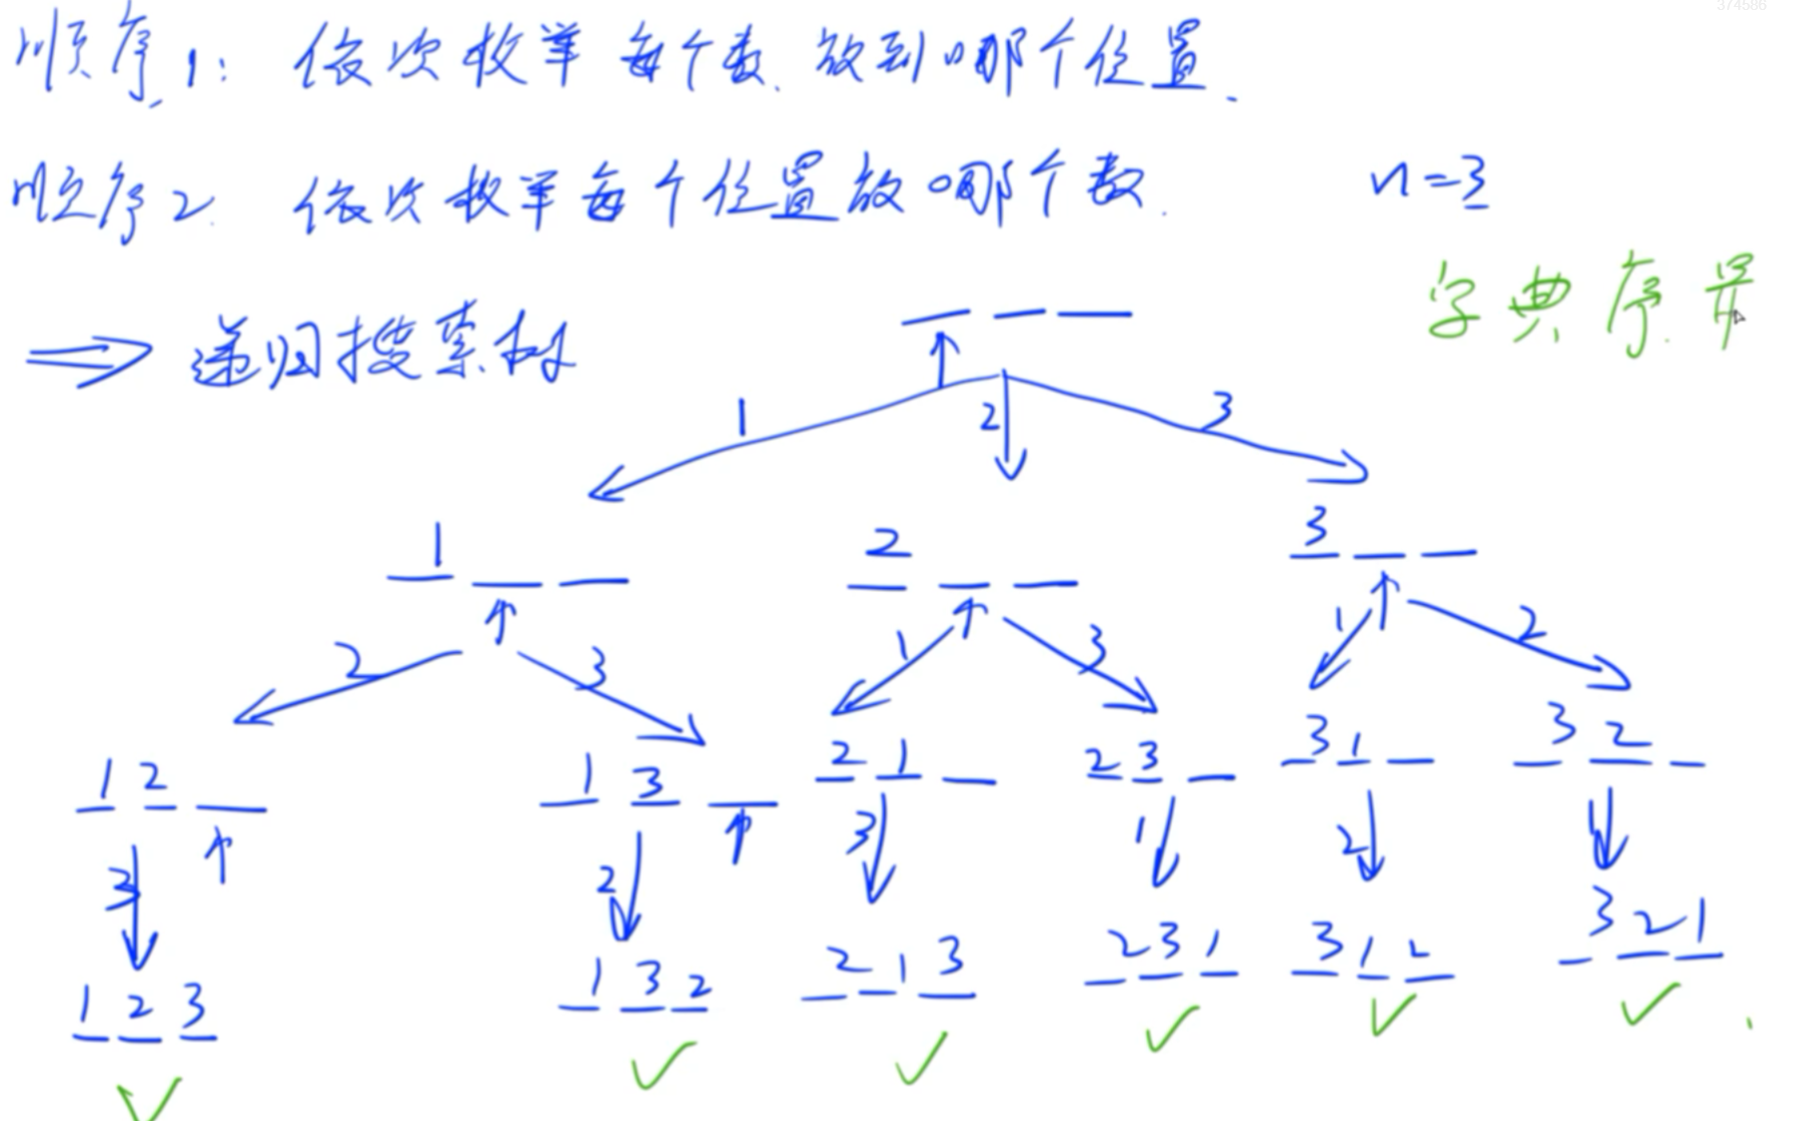 374586
顺序1: 依次枚举每个数放到哪个位置.
顺序2. 依次枚举每个位置放哪个数.
n=3
字典序最
⇒ 递归搜索树
1 2 3
1 2 3
2 3 1 3 1 2
1 2 1 3 2 1 2 3 3 1 3 2
3 2 3 1 2 1
1 2 3 1 3 2 2 1 3 2 3 1 3 1 2 3 2 1